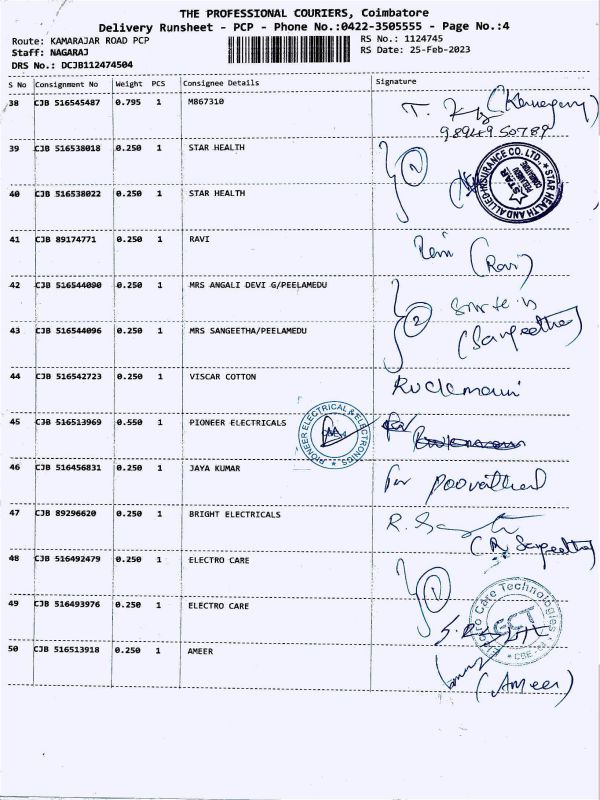 THE PROFESSIONAL COURIERS, Coimbatore
Delivery Runsheet - PCP - Phone No.:0422-3505555 - Page No.:4
Route: KAMARAJAR ROAD PCP
Staff: NAGARAJ
DRS No.: DCJB112474504
RS No.: 1124745
RS Date: 25-Feb-2023
S No Consignment No Weight PCS Consignee Details Signature
38 CJB 516545487 0.795 1 M867310
9894950789
39 CJB 516538018 0.250 1 STAR HEALTH
2
STAR HEALTH AND ALLIED INSURANCE CO. LTD.
STAR
40 CJB 516538022 0.250 1 STAR HEALTH
41 CJB 89174771 0.250 1 RAVI
(Ravi)
42 CJB 516544090 0.250 1 MRS ANGALI DEVI G/PEELAMEDU
2
43 CJB 516544096 0.250 1 MRS SANGEETHA/PEELAMEDU
(Sangeetha)
44 CJB 516542723 0.250 1 VISCAR COTTON
45 CJB 516513969 0.550 1 PIONEER ELECTRICALS
PIONEER ELECTRICAL & ELECTRONICS
46 CJB 516456831 0.250 1 JAYA KUMAR
for
47 CJB 89296620 0.250 1 BRIGHT ELECTRICALS
48 CJB 516492479 0.250 1 ELECTRO CARE
1
49 CJB 516493976 0.250 1 ELECTRO CARE
Electro Care Technologies
ECT
CBE
50 CJB 516513918 0.250 1 AMEER
(Ameer)